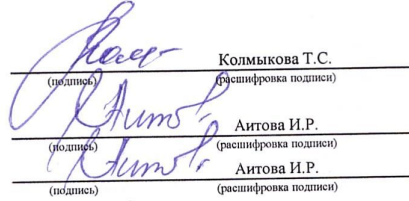 Колмыкова Т.С.
(подпись) (расшифровка подписи)
Аитова И.Р.
(подпись) (расшифровка подписи)
Аитова И.Р.
(подпись) (расшифровка подписи)